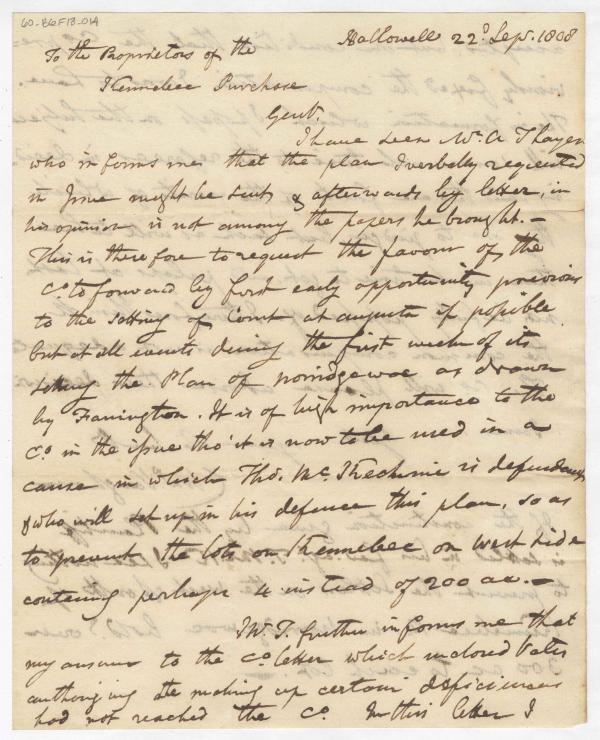 60-B6F13-014
Hallowell 22d Sepr. 1808
To the Proprietors of the
Kennebec Purchase
Gent.
I have seen Mr. A Thayer
who informs me that the plan I verbally requested
in June might be sent & afterwards by letter, in
his opinion is not among the papers he brought. -
This is therefore to request the favour of the
Co. to forward by first early opportunity previous
to the setting of Court at augusta if possible
but at all events during the first week of its
setting the Plan of norridgewoc as drawn
by Farrington. It is of high importance to the
Co. in the issue tho' it is now to be used in a
cause in which Tho. McKechnie is defendant
& who will set up in his defence this plan, so as
to prevent the lots on Kennebec on west side
containg perhaps 4 instead of 200 ac. -
Mr. T. further informs me that
my answer to the Co. letter which inclosed Votes
authorizing the making up certain deficiences
had not reached the Co. In this letter I